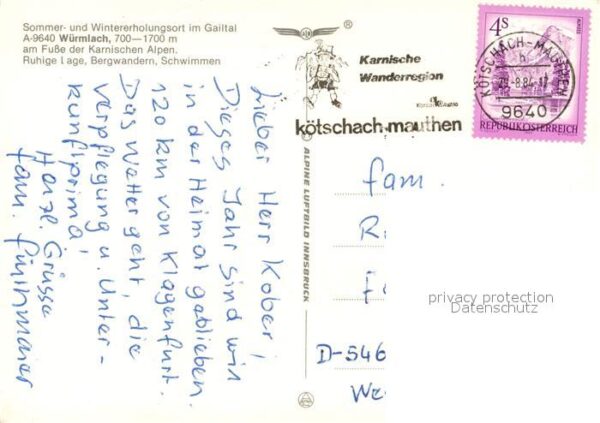 Sommer- und Wintererholungsort im Gailtal
A-9640 Würmlach, 700—1700 m
am Fuße der Karnischen Alpen.
Ruhige Lage, Bergwandern, Schwimmen
Lieber Herr Kober,
Dieses Jahr sind wir
in der Heimat geblieben.
120 km von Klagenfurt.
Das Wetter geht, die
Verpflegung u. Unter-
kunft prima!
Herzl. Grüsse
Fam.
ALPINE LUFTBILD INNSBRUCK
Karnische
Wanderregion
kötschach-mauthen
4S
KÖTSCHACH-MAUTHEN
h
-8.84-17
9640
REPUBLIK ÖSTERREICH
Fam.
R
F
privacy protection
Datenschutz
D-546
We